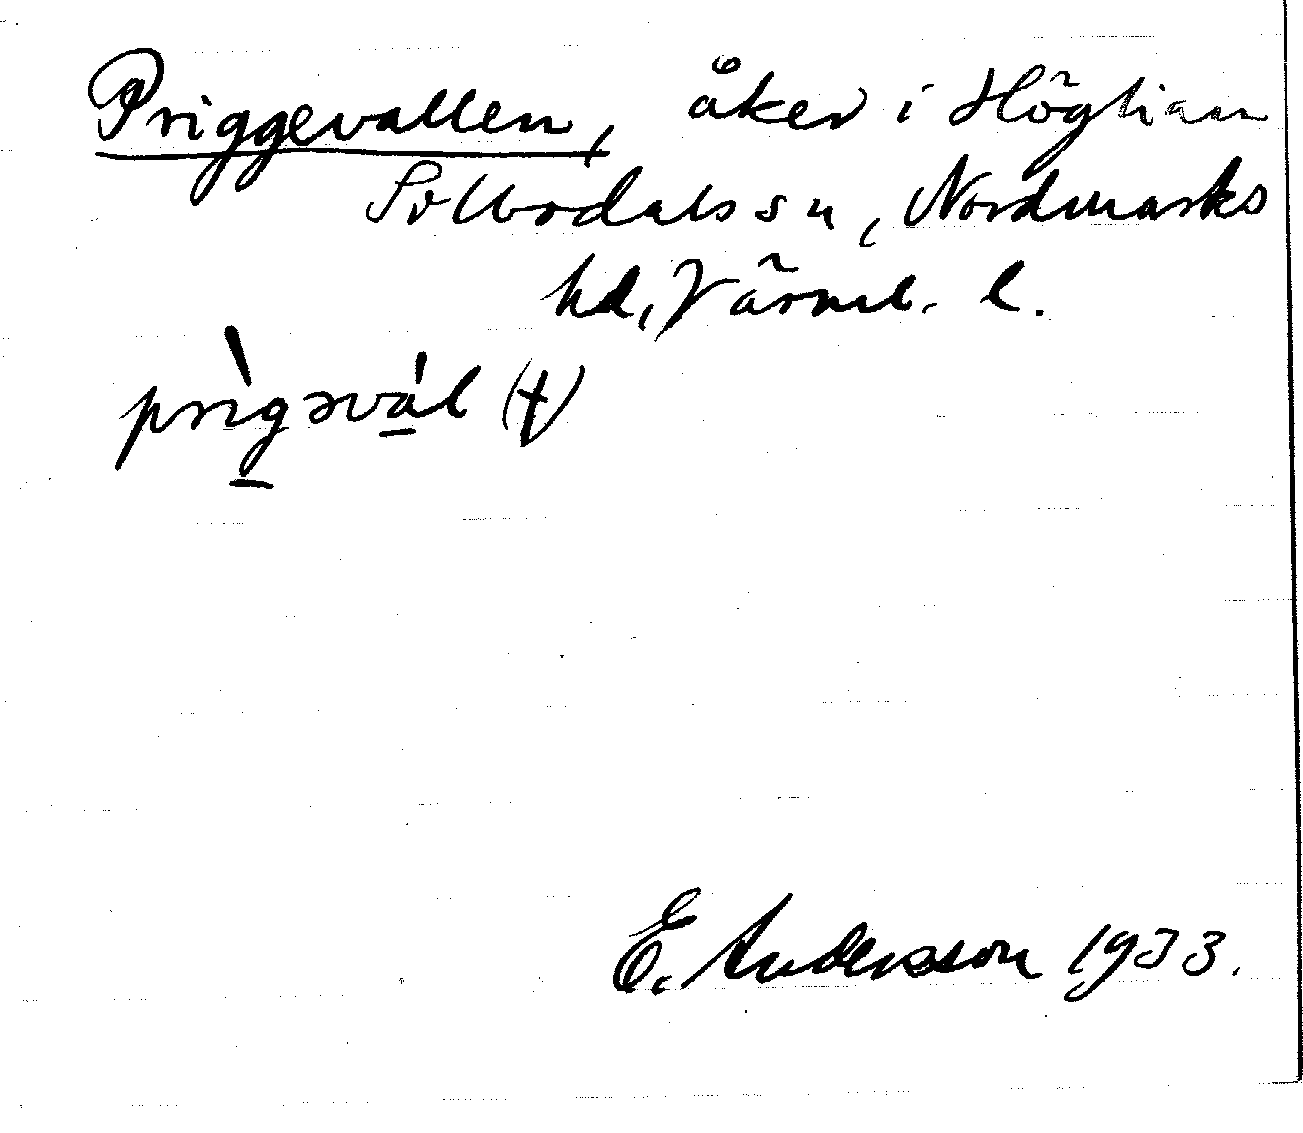 Priggevallen, åker i Höglian
Sillbodals sn, Nordmarks
hd, Värml. l.
prìgəvál (†)
E. Andersson 1933.